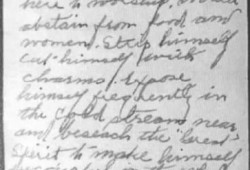 here to worship. 
abstain from food and
women. Strip himself
cut himself with
chasms. Expose
himself frequently in
the cold stream near
and beseach the "Great
Spirit to make himself